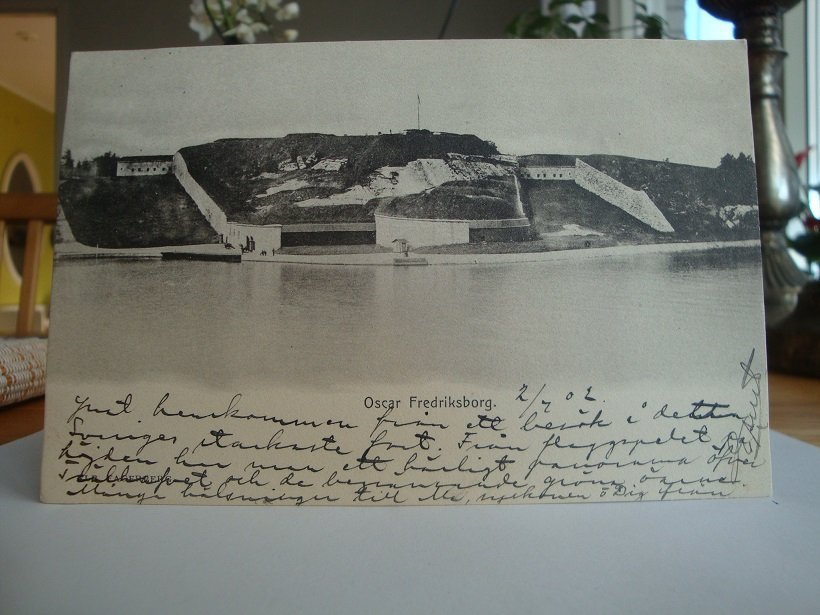 Oscar Fredriksborg. 2/7 02.
Just hemkommen från ett besök i detta
Sveriges starkaste fort. Från flaggspelet på
höjden har man ett härligt panorama öfver
och de begränsande gröna öarne.
Många hälsningar till Ma, o Dig från